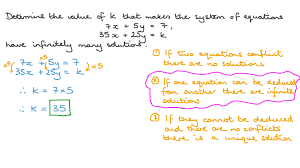 Determine the value of k that makes the system of equations
7x + 5y = 7,
35x + 25y = k,
have infinitely many solutions
x5 7x + 5y = 7 x5
x5
35x + 25y = k
∴ k = 7 x 5
∴ k = 35
① If two equations conflict
there are no solutions
② If one equation can be deduced
from another there are infinite
solutions
③ If they cannot be deduced
and there are no conflicts
there is a unique solution